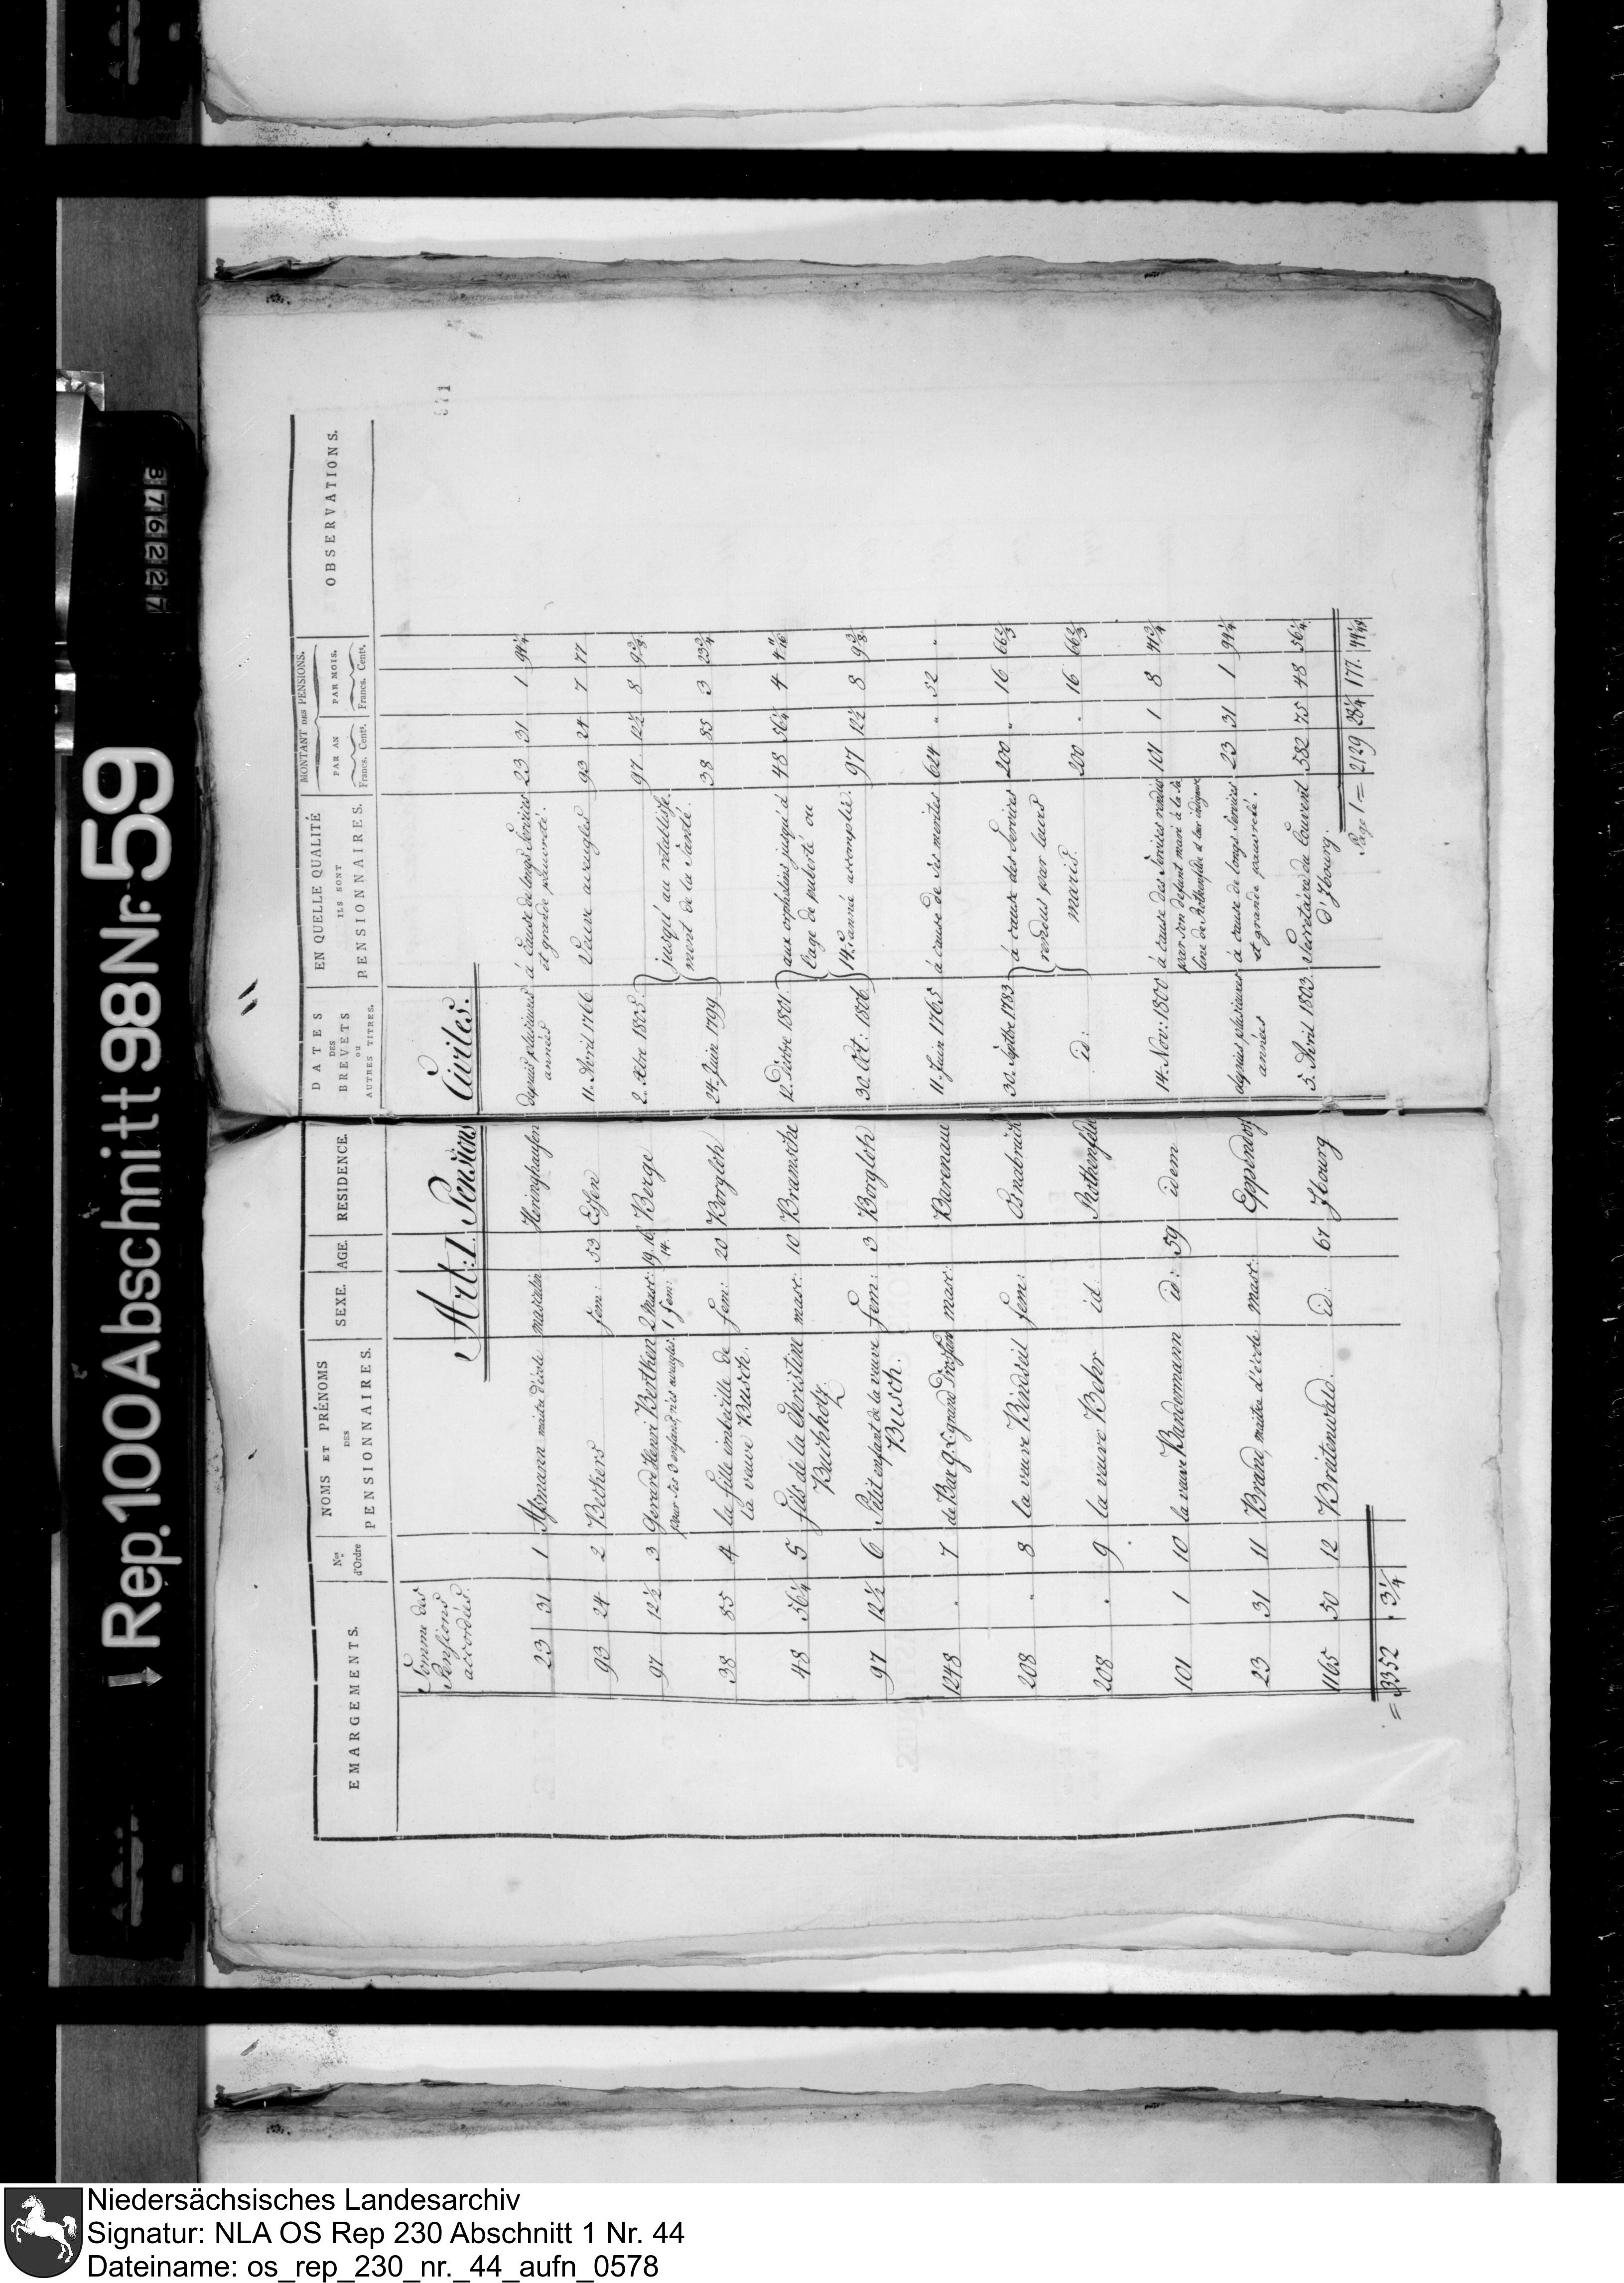 Rep. 100 A Abschnitt 98 Nr. 59
876227
571
EMARGEMENTS. | Nos d'Ordre | NOMS ET PRÉNOMS DES PENSIONNAIRES. | SEXE. | AGE. | RESIDENCE. | DATES DES BREVETS OU AUTRES TITRES. | EN QUELLE QUALITÉ ILS SONT PENSIONNAIRES. | MONTANT DES PENSIONS. PAR AN Francs. Cents. | PAR MOIS. Francs. Cents. | OBSERVATIONS.
Somme des Pensions accordées.
Art: 1. Pensions Civiles.
23 31 | 1 | Assmann maitre d'école | masculin | Heringhausen | depuis plusieures années | à cause de longs Services et grande pauvreté. | 23 31 | 1 94¼
93 24 | 2 | Bethers | fem: | 53 | Essen | 11. Avril 1766 | Veuve aveugles | 93 24 | 7 77
97 12½ | 3 | Gerard Henri Berthen pour ses 3 enfans, nés aveugles. | 2 Masc: 1 fem: | 19. 16 14. | Berge | 2. Xbre 1805. | jusqu'au retablisse- | 97 12½ | 8 9⅜
38 85 | 4 | la fille imbecille de la veuve Busch. | fem: | 20 | Borgloh | 24. Juin 1799 | ment de la Santé. | 38 85 | 3 23¾
48 56¼ | 5 | fils de la Christine Buchholz | masc: | 10 | Bramsche | 12. Decbre 1801. | aux orphelins jusqu'à l'age de puberté ou | 48 56¼ | 4 4 11/16
97 12½ | 6 | Petit enfant de la veuve Busch. | fem: | 3 | Borgloh | 30. Oct: 1806. | 14e année accomplie. | 97 12½ | 8 9⅜
1248 . | 7 | de Bar q. L. grand Drossard | masc: | Barenau | 11. Juin 1765. | à cause de ses merites | 624 " | 52 "
208 . | 8 | la veuve Bindseil | fem: | Osnabrück | 30. Septbre 1783. | à cause des Services | 200 " | 16 66⅔
208 . | 9 | la veuve Behr | id: | Rothenfelde | id: | rendus par leurs maris. | 200 . | 16 66⅔
101 1 | 10 | la veuve Bandermann | id: | 59 | idem | 14. Nov: 1800 | à cause des Services rendus par son defunt mari à la Sa- line de Rothenfelde et leur indigence | 101 1 | 8 41¾
23 31 | 11 | Brand, maitre d'école | masc: | Eppendorf | depuis plusieures années | à cause de longs Services et grande pauvreté. | 23 31 | 1 94¼
1165 50 | 12 | Breitenwald. | id: | 67 | Jbourg | 5. Avril 1803. | Secretaire du Couvent d'Jbourg. | 582 75 | 48 56¼
= 3352 . 3¼
Page 1 = 2129 28¼ 177.
Niedersächsisches Landesarchiv
Signatur: NLA OS Rep 230 Abschnitt 1 Nr. 44
Dateiname: os_rep_230_nr._44_aufn_0578